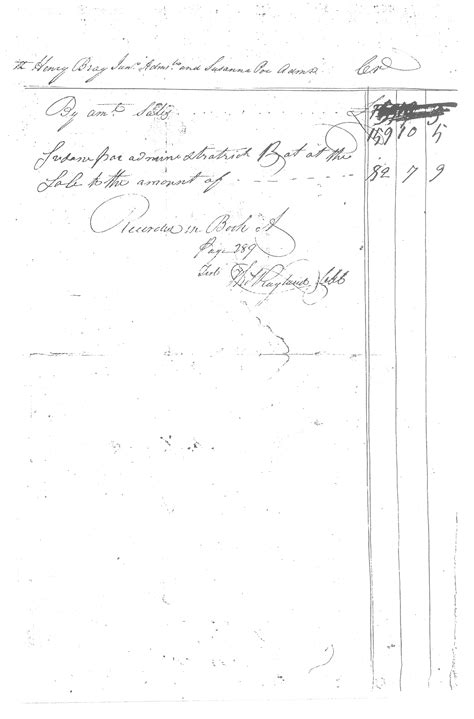 Henry Bray Junr. Admr. and Susanna Poe Admx Cr
By amt. Sales
159 10 5
Susana poe administratrick B at at the
Sale to the amount of 82 7 9
Recorded in Book A
Page 289
Test